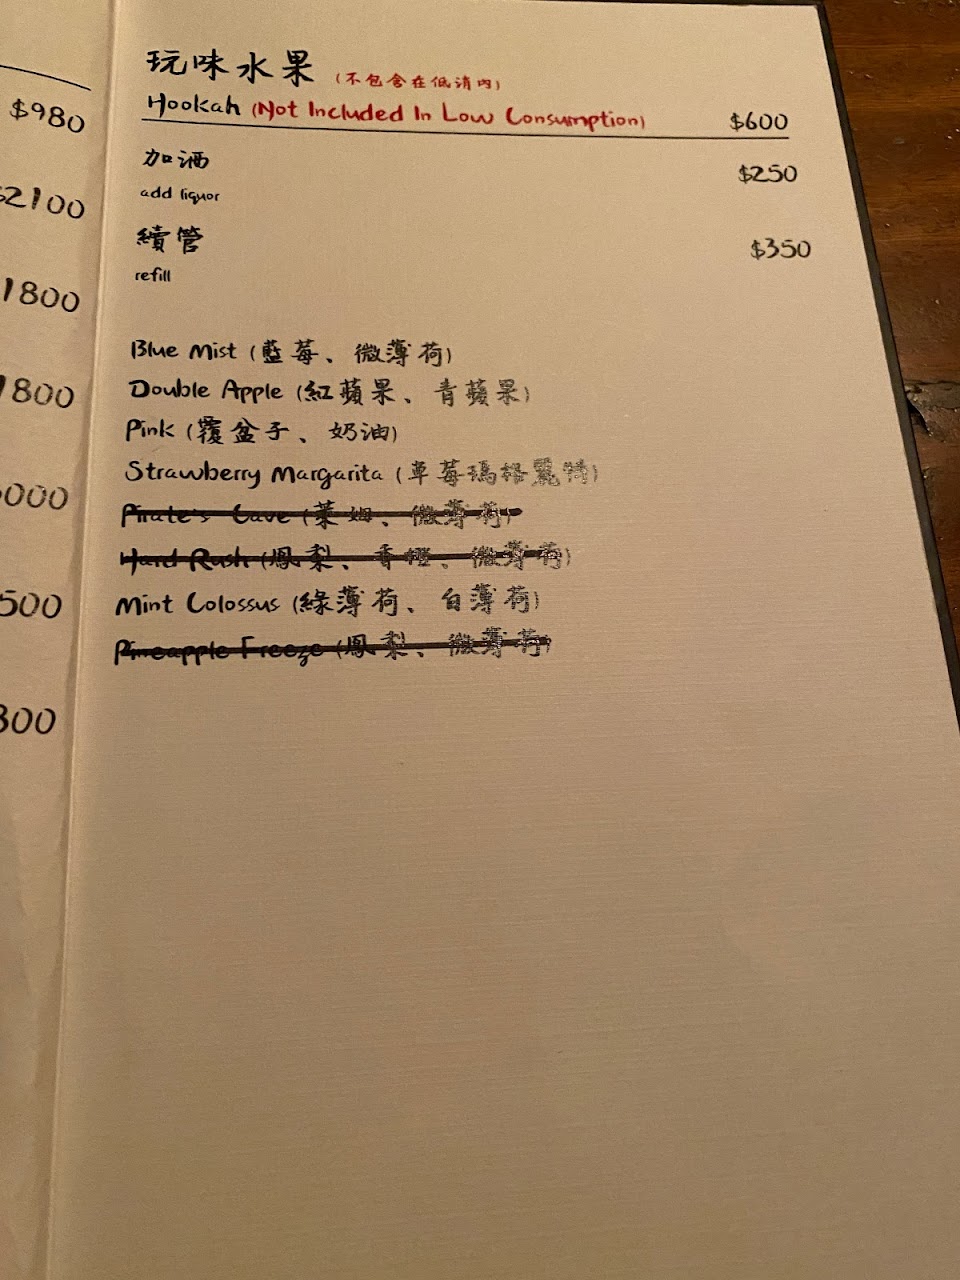 $980
$2100
1800
1800
000
500
300
玩味水果 (不包含在低消內)
Hookah (Not Included In Low Consumption) $600
加酒 $250
add liquor
續管 $350
refill
Blue Mist (藍莓、微薄荷)
Double Apple (紅蘋果、青蘋果)
Pink (覆盆子、奶油)
Strawberry Margarita (草莓瑪格麗特)
Pirate's Cave (萊姆、微薄荷)
Hard Rush (鳳梨、香橙、微薄荷)
Mint Colossus (綠薄荷、白薄荷)
Pineapple Freeze (鳳梨、微薄荷)